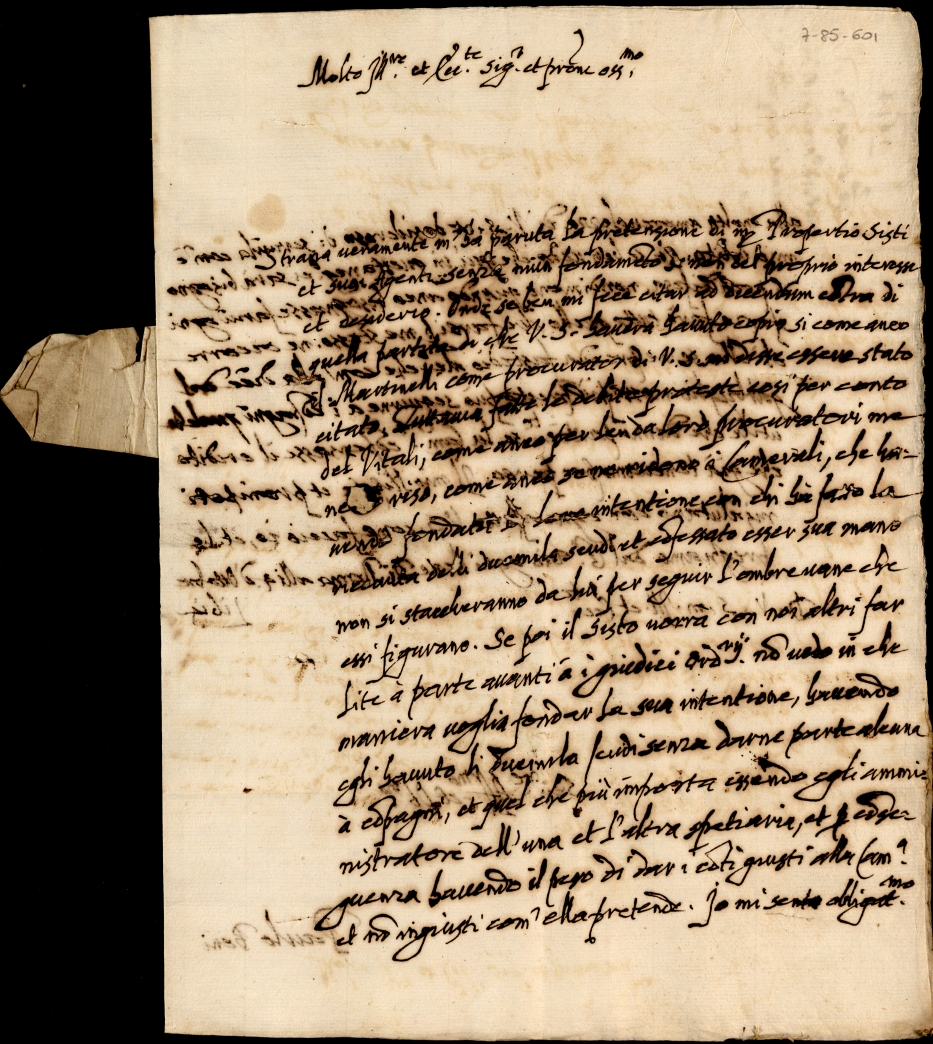 7-85-601
Molto Ill.re et Ecc.te Sig.r et prone oss.mo
Strana veramente m'è paruta la pretensione di m. Propertio Sisti
et suoi Agenti senza niun fondamēto se non del proprio interesse
et desiderio. Onde se ben mi fece citar ad dicendum cōtra di
quella partita di che V. S. haverà havuto copia si come anco
il Martinelli come procurator di V. S. mi disse essere stato
citato, tuttavia fatte le debite proteste cosi per conto
del Vitali, come anco per lui da loro procuratori me
ne riso, come anco se ne ridono i Camerali, che ha-
vendo fondata la loro intentione con chi hà fatto la
ricevuta delli duemila scudi et cōfessato esser sua mano
non si staccheranno da lui per seguir l'ombre vane che
essi figurano. Se poi il Sisto vorrà con noi altri far
lite à parte avanti à i giudici ord.rij nō vedo in che
maniera voglia fondar la sua intentione, havendo
egli havuto li duemila scudi senza darne parte alcuna
à cōpagni, et quel che più importa essendo egli ammi-
nistratore dell'una et l'altra spetiaria, et p cōse-
guenza havendo il peso di dar i cōti giusti alla Cam.a
et nō ingiusti com' ella pretende. Io mi sento obligat.mo